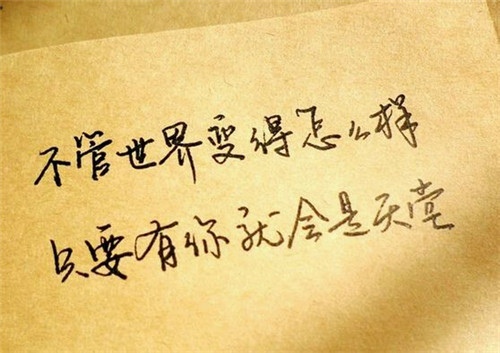 不管世界变得怎么样
只要有你就会是天堂